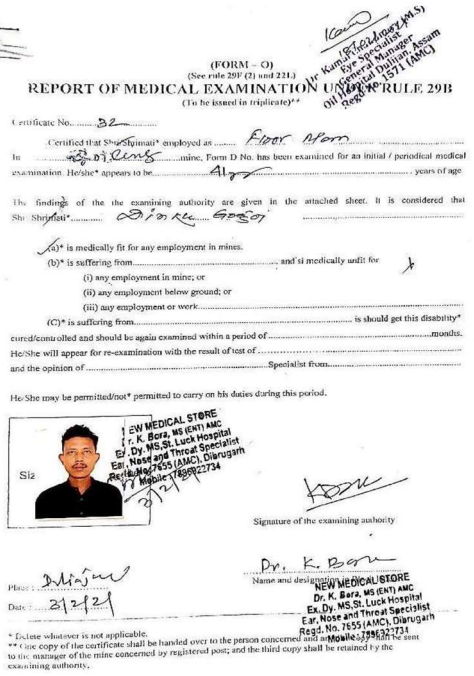 (FORM – O)
(See rule 29F (2) and 22L)
REPORT OF MEDICAL EXAMINATION UNDER RULE 29B
(To be issued in triplicate)**
Certificate No. 32
Certified that Shri/Shrimati* employed as Floor
In mine, Form D No. has been examined for an initial / periodical medical
examination. He/she* appears to be 41 years of age
The findings of the the examining authority are given in the attached sheet. It is considered that
Shri Shrimati*
(a)* is medically fit for any employment in mines.
(b)* is suffering from and si medically unfit for
(i) any employment in mine; or
(ii) any employment below ground; or
(iii) any employment or work
(C)* is suffering from is should get this disability*
cured/controlled and should be again examined within a period of months.
He/She will appear for re-examination with the result of test of
and the opinion of Specialist from
He/She may be permitted/not* permitted to carry on his duties during this period.
EW MEDICAL STORE
r. K. Bora, MS (ENT) AMC
Ex. Dy. MS, St. Luck Hospital
Ear, Nose and Throat Specialist
Regd. No. 7655 (AMC), Dibrugarh
Mobile : 7896922734
Siz
Signature of the examining authority
Dr. K. Bora
Name and designation in
NEW MEDICAL STORE
Dr. K. Bora, MS (ENT) AMC
Ex. Dy. MS, St. Luck Hospital
Ear, Nose and Throat Specialist
Regd. No. 7655 (AMC), Dibrugarh
Place : Duliajan
Date : 2/2/21
* Delete whatever is not applicable.
** One copy of the certificate shall be handed over to the person concerned and another copy shall be sent
to the manager of the mine concerned by registered post; and the third copy shall be retained by the
examining authority.